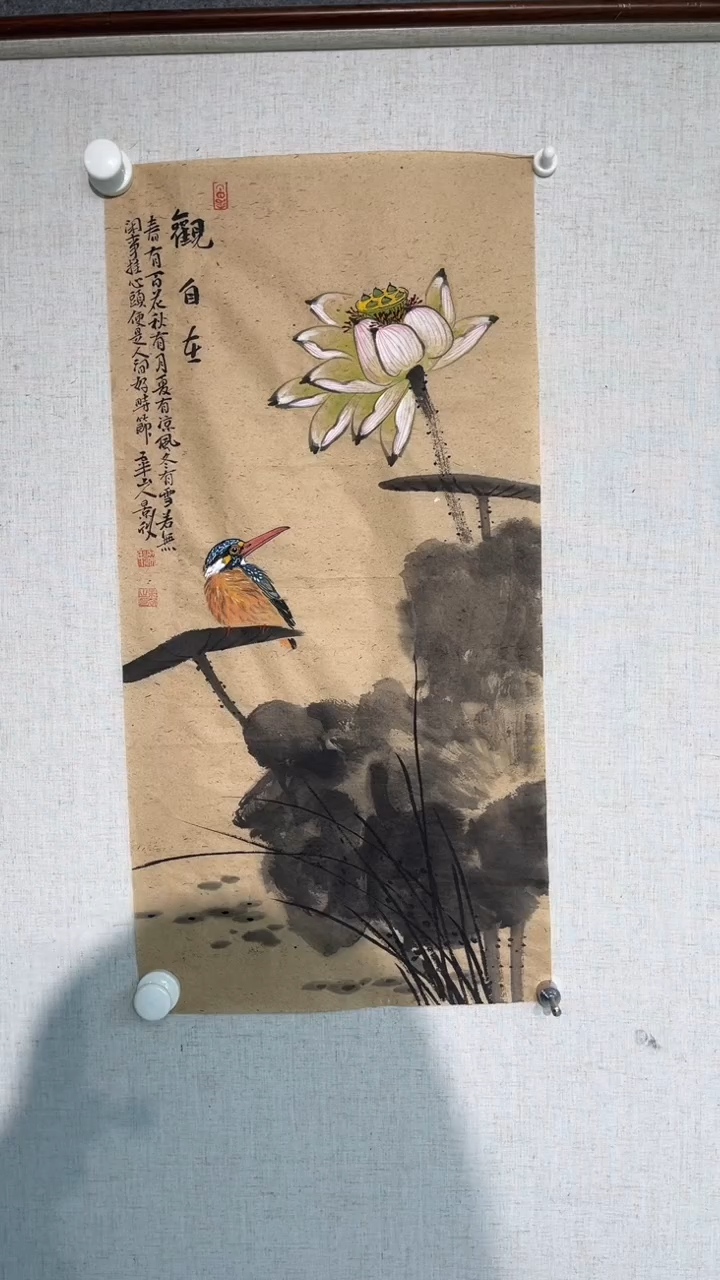 觀自在
春有百花秋有月夏有凉風冬有雪若無
閑事挂心頭便是人间好時節 山人景秋